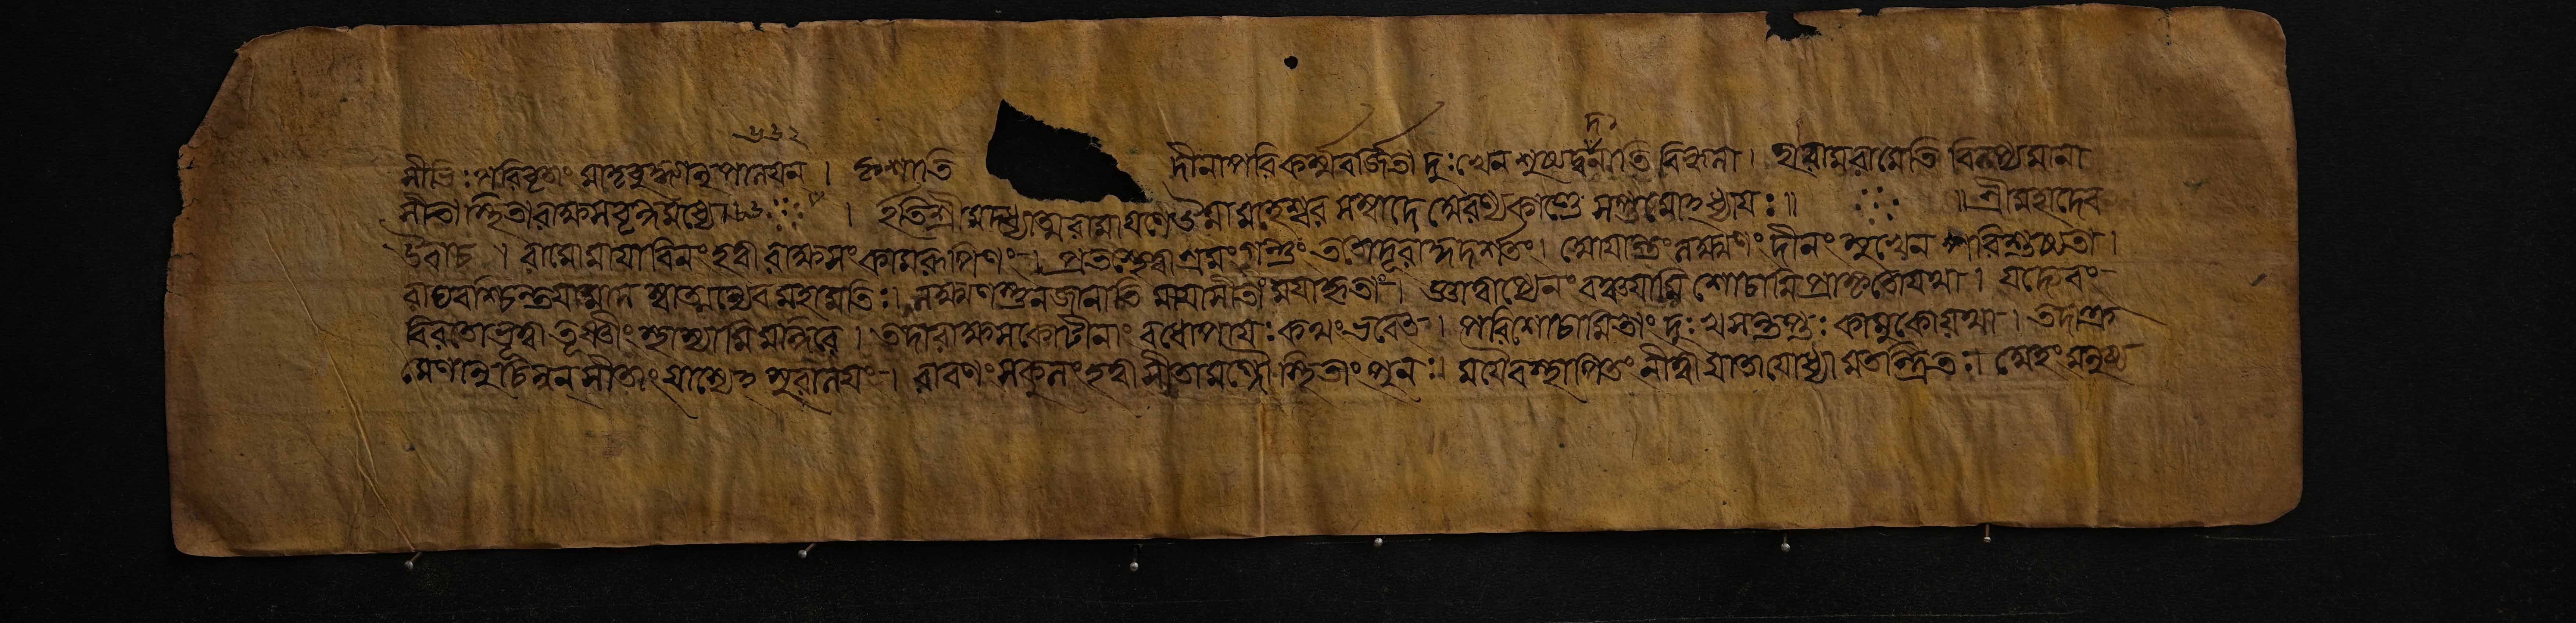 সীভিঃ পরিবৃতাং মাতৃবুদ্ধ্যানুপালয়ন । কৃশাতি দীনাপরিকর্ম্মবর্জিতা দুঃখেন শুষ্যদ্বদনাতি বিহ্বলা । হারামরামেতি বিলপ্যমানা
সীতা স্থিতারাক্ষসবৃন্দমধ্যে । ইতিশ্রীমদধ্যাত্মরামায়ণেউমামহেশ্বর সম্বাদে অরণ্যকাণ্ডে সপ্তমোঽধ্যায়ঃ ॥ ॥ শ্রীমহাদেব
উবাচ । রামোমায়াবিনং হত্বা রাক্ষসং কামরূপিণং । প্রতস্থেস্বাশ্রমং গন্তুং ততোদূরাদ্দদর্শতং । আয়ান্তং লক্ষ্মণং দীনং মুখেন পরিশুষ্যতা ।
রাঘবশ্চিন্তয়ামাস স্বাত্মন্যেবমহামতিঃ । লক্ষ্মণস্তন্নজানাতি মায়াসীতাং ময়াকৃতাং । জ্ঞাত্বাপ্যেনং বঞ্চয়ামি শোচামিপ্রাকৃতোযথা । যদ্যহং
বিরতোভূত্বা তূষ্ণীং স্থাস্যামি মন্দিরে । তদারাক্ষসকোটীনাং বধোপায়ঃ কথং ভবেৎ । পরিশোচামিতাং দুঃখসন্তপ্তঃ কামুকোযথা । তদাক্র
মেণানুচিন্বন্ সীতাং যাস্যেঽসুরালয়ং । রাবণং সকুলং হত্বা সীতামগ্নৌ স্থিতাং পুনঃ । ময়ৈবস্থাপিতাং নীত্বা যাতাযোধ্যামতন্দ্রিতঃ । অহং মনুষ্য